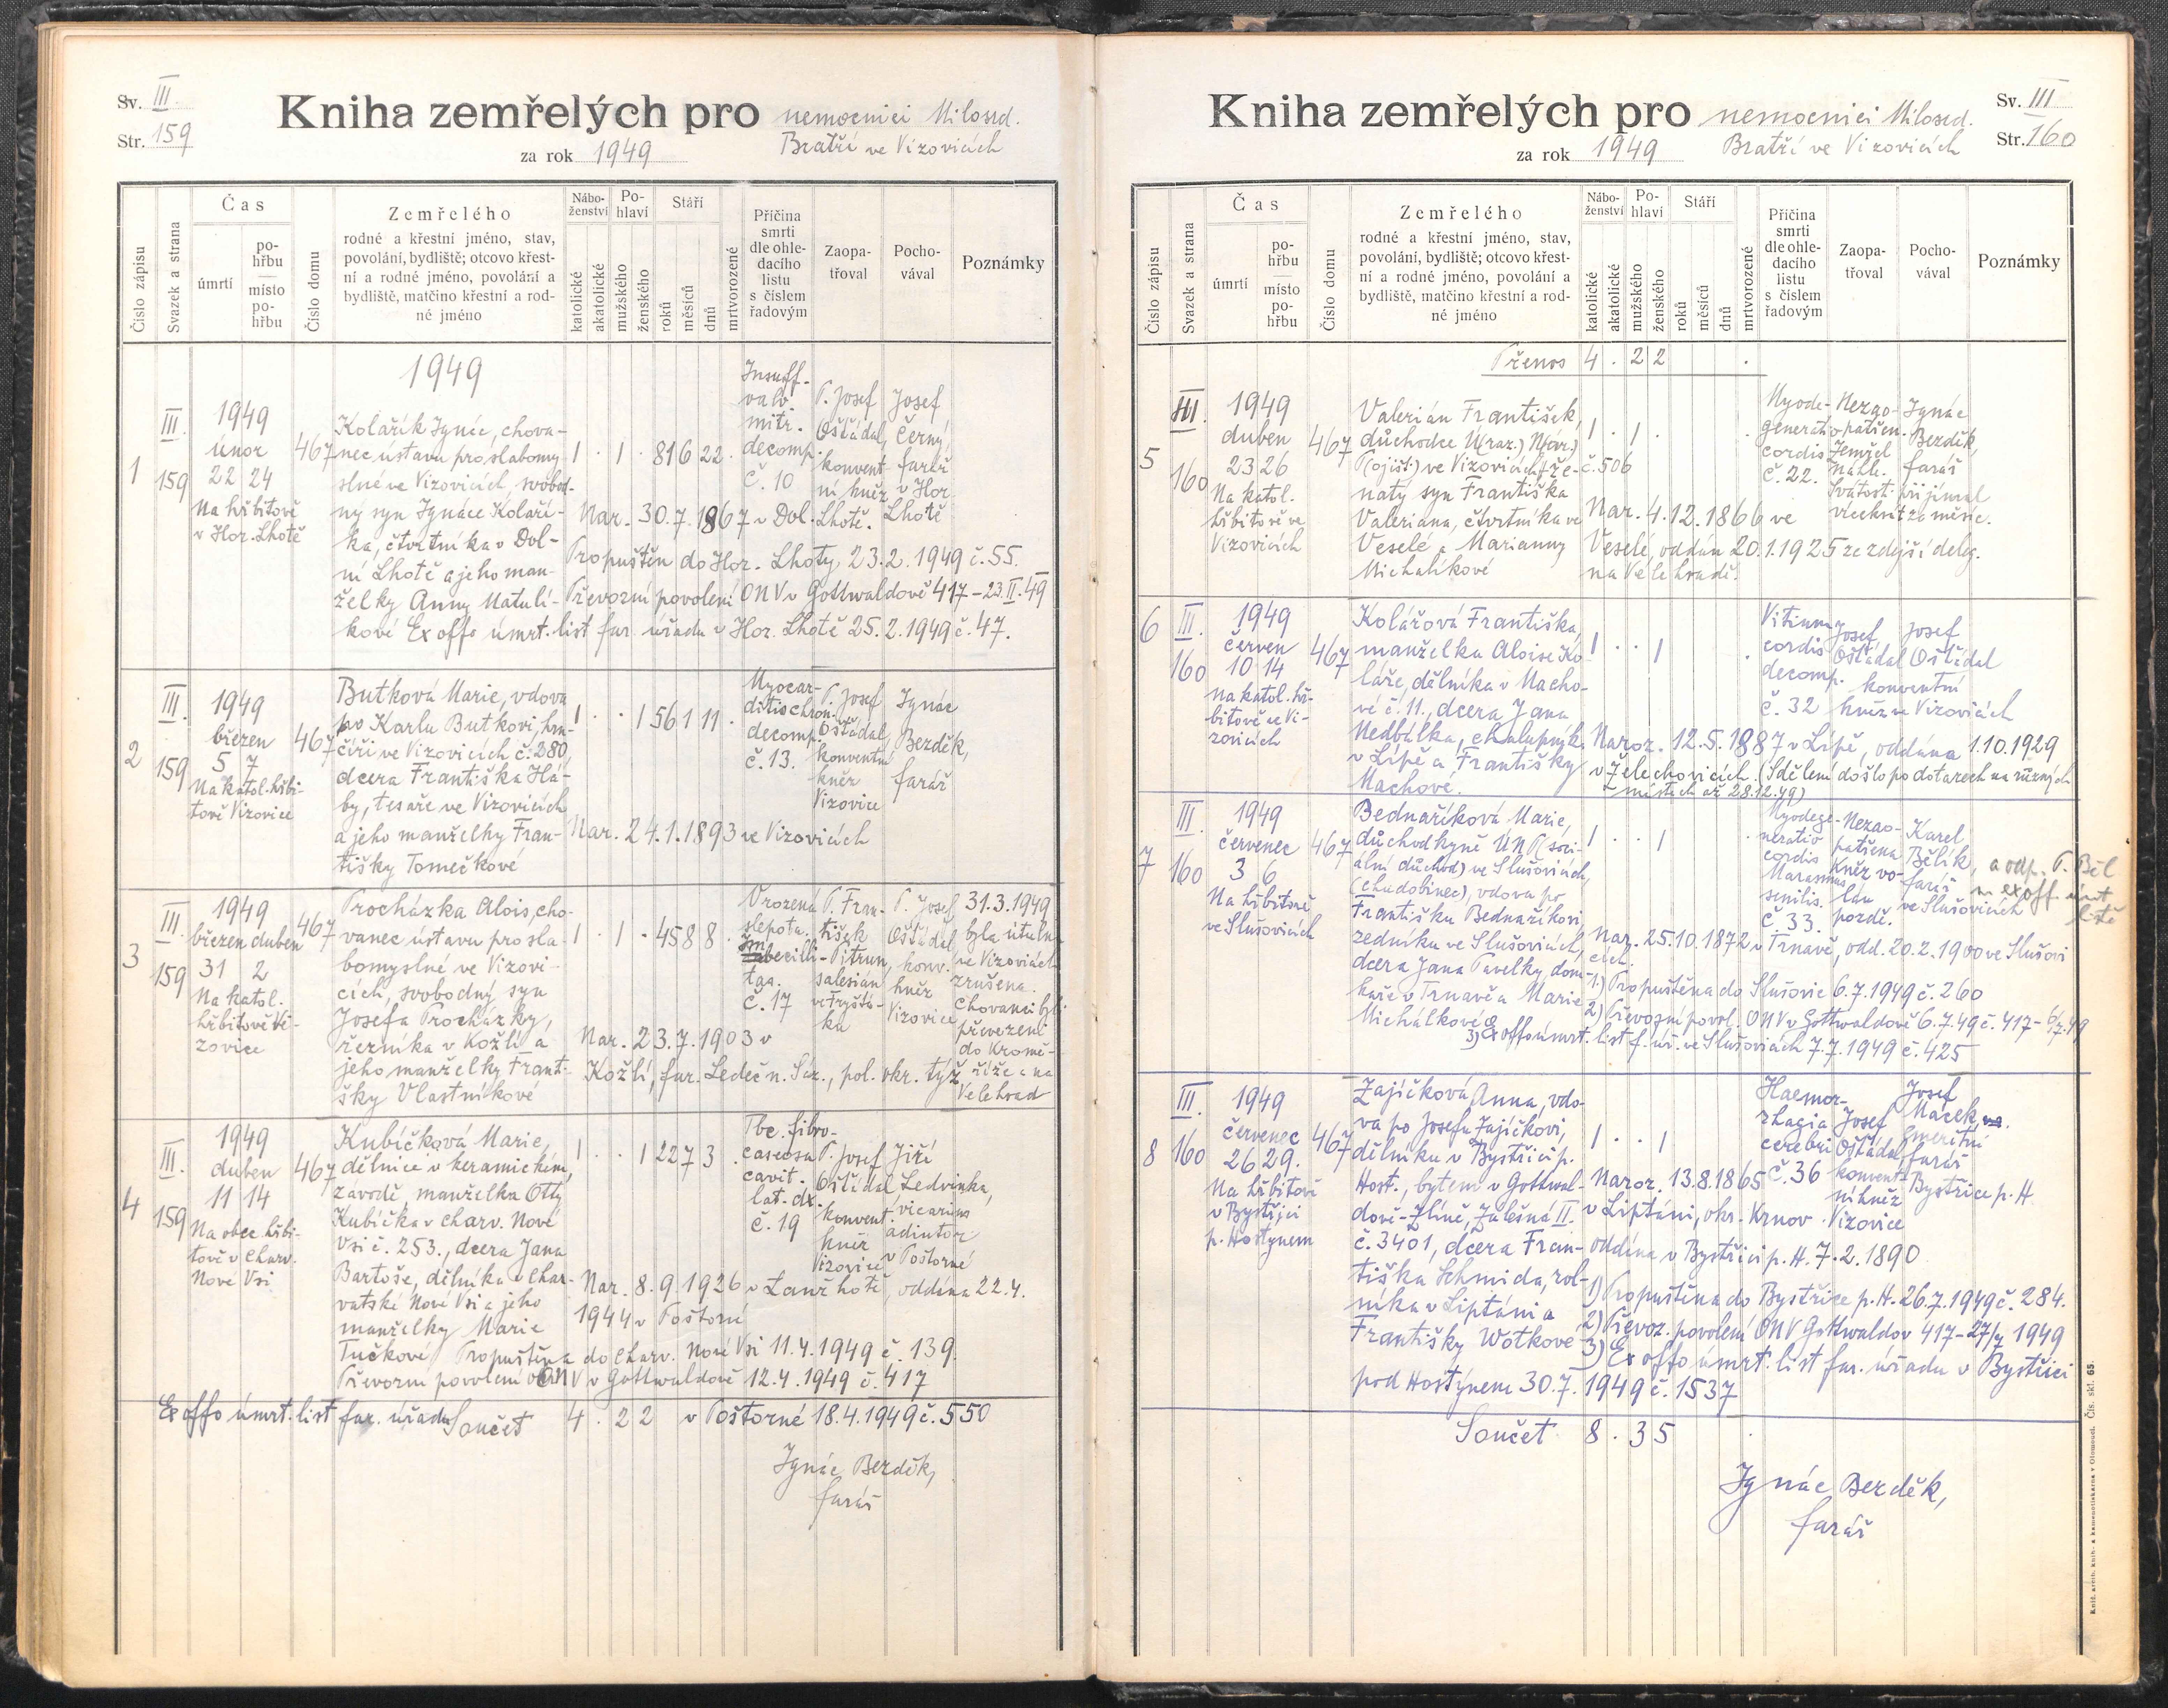 Sv. III
Str. 159
Kniha zemřelých pro nemocnici Milosrd.
Bratří ve Vizovicích
za rok 1949
Číslo zápisu
Svazek a strana
Čas
úmrtí
po-
hřbu
místo
po-
hřbu
Číslo domu
Zemřelého
rodné a křestní jméno, stav,
povolání, bydliště; otcovo křest-
ní a rodné jméno, povolání a
bydliště, matčino křestní a rod-
né jméno
Nábo-
ženství
katolické
akatolické
Po-
hlaví
mužského
ženského
Stáří
roků
měsíců
dnů
mrtvorozené
Příčina
smrti
dle ohle-
dacího
listu
s číslem
řadovým
Zaopa-
třoval
Pocho-
vával
Poznámky
1949
1
III.
159
1949
únor
22 24
Na hřbitově
v Hor. Lhotě
467
Kolařík Ignác, chova-
nec ústavu pro slabomy
slné ve Vizovicích, svobod-
ný syn Ignáce Kolaří-
ka, čtvrtníka v Dol-
ní Lhotě a jeho man-
želky Anny Matulí-
kové
1 . 1 . 81 6 22 .
Insuff.
valv.
mitr.
decomp.
č. 10
P. Josef
Ošťádal,
konvent
ní kněz
Josef
Černý
farář
v Hor.
Lhotě
Nar. 30.7.1867 v Dol. Lhotě.
Propuštěn do Hor. Lhoty, 23.2.1949 č. 55.
Převozní povolení ONV v Gottwaldově 417-23.II.49
Ex offo úmrt. list far. úřadu v Hor. Lhotě 25.2.1949 č. 47.
2
III.
159
1949
březen
5 7
Na katol. hřbi-
tově Vizovice
467
Butková Marie, vdova
po Karlu Butkovi, hrn-
číři ve Vizovicích č. 280,
dcera Františka Há-
by, tesaře ve Vizovicích
a jeho manželky Fran-
tišky Tomečkové
1 . . 1 56 1 11 .
Myocar-
ditis chron.
decomp.
č. 13.
P. Josef
Ošťádal,
konventní
kněz
Vizovice
Ignác
Bezděk,
farář
Nar. 24.1.1893 ve Vizovicích
3
III.
159
1949
březen duben
31 2
Na katol.
hřbitově Vi-
zovice
467
Procházka Alois, cho-
vanec ústavu pro sla-
bomyslné ve Vizovi-
cích, svobodný syn
Josefa Procházky,
řezníka v Kožlí a
jeho manželky Franti-
šky Vlastníkové
1 . 1 . 45 8 8 .
Vrozená
slepota.
Imbecilli-
tas.
č. 17
P. Fran-
tišek
Pitrun,
salesián
ve Fryštá-
ku
P. Josef
Ošťádal
konv.
kněz
Vizovice
31.3.1949
byla útuln
ve Vizovicích
zrušena.
Chovanci byli
převezeni
do Kromě-
říže a na
Velehrad
Nar. 23.7.1903 v
Kožlí, far. Ledeč n. Sáz., pol. okr. týž
4
III.
159
1949
duben
11 14
Na obec. hřbi-
tově v Charv.
Nové Vsi
467
Kubíčková Marie,
dělnice v keramickém
závodě, manželka Otty
Kubíčka v Charv. Nové
Vsi č. 253., dcera Jana
Bartoše, dělníka v Char-
vatské Nové Vsi a jeho
manželky Marie
Tučkové
1 . . 1 22 7 3 .
Tbc. fibro-
caseosa
cavit.
lat. dx.
č. 19
P. Josef
Ošťádal
konvent.
kněz
Vizovice
Jiří
Ledvinka,
vicarius
adiutor
v Poštorné
Nar. 8.9.1926 v Lanžhotě, oddána 22.4.
1944 v Poštorné
Propuštěna do Charv. Nové Vsi 11.4.1949 č. 139.
Převozní povolení ONV v Gottwaldově 12.4.1949 č. 417
Ex offo úmrt. list far. úřadu v Poštorné 18.4.1949 č. 550
Součet 4 . 2 2
Ignác Bezděk,
farář
Kniha zemřelých pro nemocnici Milosrd.
Bratří ve Vizovicích
za rok 1949
Sv. III
Str. 160
Číslo zápisu
Svazek a strana
Čas
úmrtí
po-
hřbu
místo
po-
hřbu
Číslo domu
Zemřelého
rodné a křestní jméno, stav,
povolání, bydliště; otcovo křest-
ní a rodné jméno, povolání a
bydliště, matčino křestní a rod-
né jméno
Nábo-
ženství
katolické
akatolické
Po-
hlaví
mužského
ženského
Stáří
roků
měsíců
dnů
mrtvorozené
Příčina
smrti
dle ohle-
dacího
listu
s číslem
řadovým
Zaopa-
třoval
Pocho-
vával
Poznámky
Přenos 4 . 2 2 .
5
III.
160
1949
duben
23 26
Na katol.
hřbitově ve
Vizovicích
467
Valerián František,
důchodce Ú(raz.) N(ár.)
P(ojišť.) ve Vizovicích, že-
natý syn Františka
Valeriana, čtvrtníka ve
Veselé a Marianny
Michalíkové
1 . 1 . .
č. 506
Myode-
generatio
cordis
č. 22.
Nezao-
patřen.
Zemřel
náhle.
Svátosti přijímal
všechny téměř.
Ignác
Bezděk,
farář
Nar. 4.12.1866 ve
Veselé, oddán 20.1.1925 ze zdejší deleg.
na Velehradě.
6
III.
160
1949
červen
10 14
Na katol. hř-
bitově ve Vi-
zovicích
467
Kolářová Františka,
manželka Aloise Ko-
láře, dělníka v Macho-
vé č. 11., dcera Jana
Nedbálka, chalupník
v Lípě a Františky
Machové.
1 . . 1 .
Vitium
cordis
decomp.
č. 32
Josef
Ošťádal
Josef
Ošťádal
konventní
kněz ve Vizovicích
Naroz. 12.5.1887 v Lípě, oddána 1.10.1929
v Želechovicích. (Sdělení došlo po dotazech na různých
místech až 28.12.49)
7
III.
160
1949
červenec
3 6
Na hřbitově
ve Slušovicích
467
Bednaříková Marie,
důchodkyně ÚNP (soci-
ální důchod) ve Slušovicích,
(chudobinec), vdova po
Františku Bednaříkovi,
zedníku ve Slušovicích,
dcera Jana Pavelky, dom-
kaře v Trnavě a Marie
Michálkové
1 . . 1 .
Myodege-
neratio
cordis
Marasmus
senilis.
č. 33.
Nezao-
patřena
Kněz vo-
lán
pozdě.
Karel
Bělík,
farář
ve Slušovicích
Nar. 25.10.1872 v Trnavě, odd. 20.2.1900 ve Slušovi
cích.
1) Propuštěna do Slušovic 6.7.1949 č. 260
2) Převozní povol. ONV v Gottwaldově 6.7.49 č. 417-6/7.49
3) Ex offo úmrt. list f. úř. ve Slušovicích 7.7.1949 č. 425
8
III.
160
1949
červenec
26 29.
Na hřbitově
v Bystřici
p. Hostýnem
467
Zajíčková Anna, vdo-
va po Josefu Zajíčkovi,
dělníku v Bystřici p.
Host., bytem v Gottwal-
dově-Zlíně, Zálešná II.
č. 3401, dcera Fran-
tiška Schmida, rol-
níka v Liptáni a
Františky Wotkové
1 . . 1
Haemor-
rhagia
cerebri
č. 36
Josef
Ošťádal
konvent-
ní kněz
Vizovice
Josef
Macek,
emeritní
farář
Bystřice p. H.
Naroz. 13.8.1865
v Liptáni, okr. Krnov.
oddána v Bystřici p. H. 7.2.1890
1) Propuštěna do Bystřice p. H. 26.7.1949 č. 284.
2) Převoz. povolení ONV Gottwaldov 417-27/7 1949
3) Ex offo úmrt. list far. úřadu v Bystřici
pod Hostýnem 30.7.1949 č. 1537
Součet 8 . 3 5 .
Ignác Bezděk,
farář
Kniž. arcib. knih- a kamenotiskárna v Olomouci. Čís. skl. 65.